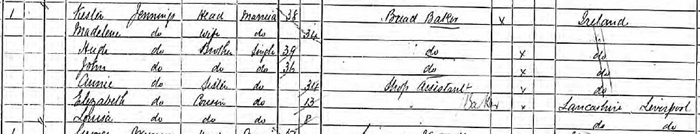 1 Jennings Head Married 38 Bread Baker x Ireland
Madeleine do Wife do 34 do
Hugh do Brother Single 39 do x do
John do do do 36 do x do
Annie do Sister do 34 Shop Assistant x do
Elizabeth do Cousin do 13 Baker x Lancashire Liverpool
Louisa do do do 8 do do
1